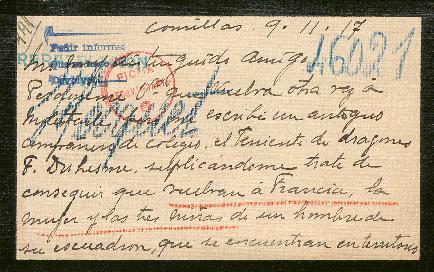 Comillas 9. 11. 17
Pedir informes
46021
distinguido amigo
FICHA
Perdoneme Vd que vuelva otra vez á
molestarle pero me escribe un antiguo
compañero de colegio, el Teniente de dragones
F. Duhesme, suplicandome trate de
conseguir que vuelvan á Francia, la
mujer y las tres niñas de un hombre de
su escuadron, que se encuentran en territorio